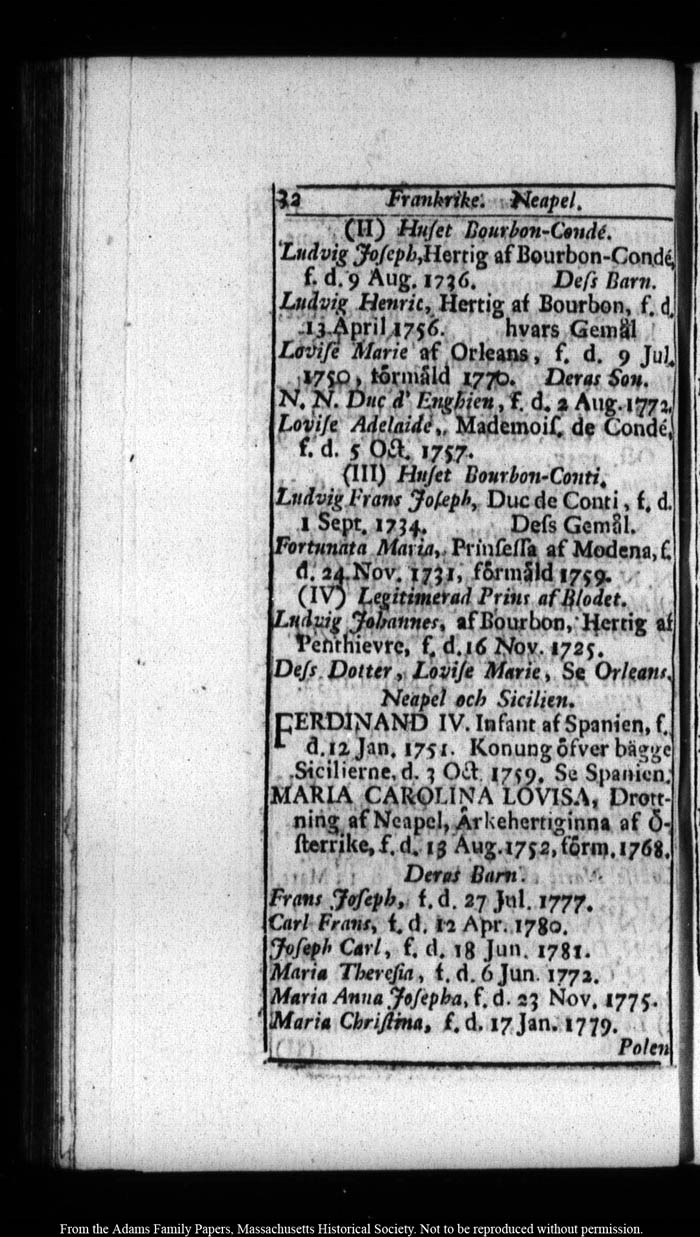 32 Frankrike. Neapel.
(II) Huſet Bourbon-Condé.
Ludvig Joſeph, Hertig af Bourbon-Condé,
f. d. 9 Aug. 1736. Deſs Barn.
Ludvig Henric, Hertig af Bourbon, f. d.
13 April 1756. hvars Gemål
Loviſe Marie af Orleans, f. d. 9 Jul.
1750, förmäld 1770. Deras Son.
N. N. Duc d' Enghien, f. d. 2 Aug. 1772.
Loviſe Adelaide, Mademoiſ. de Condé,
f. d. 5 Oct. 1757.
(III) Huſet Bourbon-Conti.
Ludvig Frans Joſeph, Duc de Conti, f. d.
1 Sept. 1734. Deſs Gemål.
Fortunata Maria, Prinſeſſa af Modena, f.
d. 24 Nov. 1731, förmäld 1759.
(IV) Legitimerad Prins af Blodet.
Ludvig Johannes, af Bourbon, Hertig af
Penthievre, f. d. 16 Nov. 1725.
Deſs Dotter, Loviſe Marie, Se Orleans.
Neapel och Sicilien.
FERDINAND IV. Infant af Spanien, f.
d. 12 Jan. 1751. Konung öfver bägge
Sicilierne, d. 3 Oct. 1759. Se Spanien.
MARIA CAROLINA LOVISA, Drott-
ning af Neapel, Ärkehertiginna af Ö-
ſterrike, f. d. 13 Aug. 1752, förm. 1768.
Deras Barn.
Frans Joſeph, f. d. 27 Jul. 1777.
Carl Frans, f. d. 12 Apr. 1780.
Joſeph Carl, f. d. 18 Jun. 1781.
Maria Thereſia, f. d. 6 Jun. 1772.
Maria Anna Joſepha, f. d. 23 Nov. 1775.
Maria Chriſtina, f. d. 17 Jan. 1779.
Polen
From the Adams Family Papers, Massachusetts Historical Society. Not to be reproduced without permission.